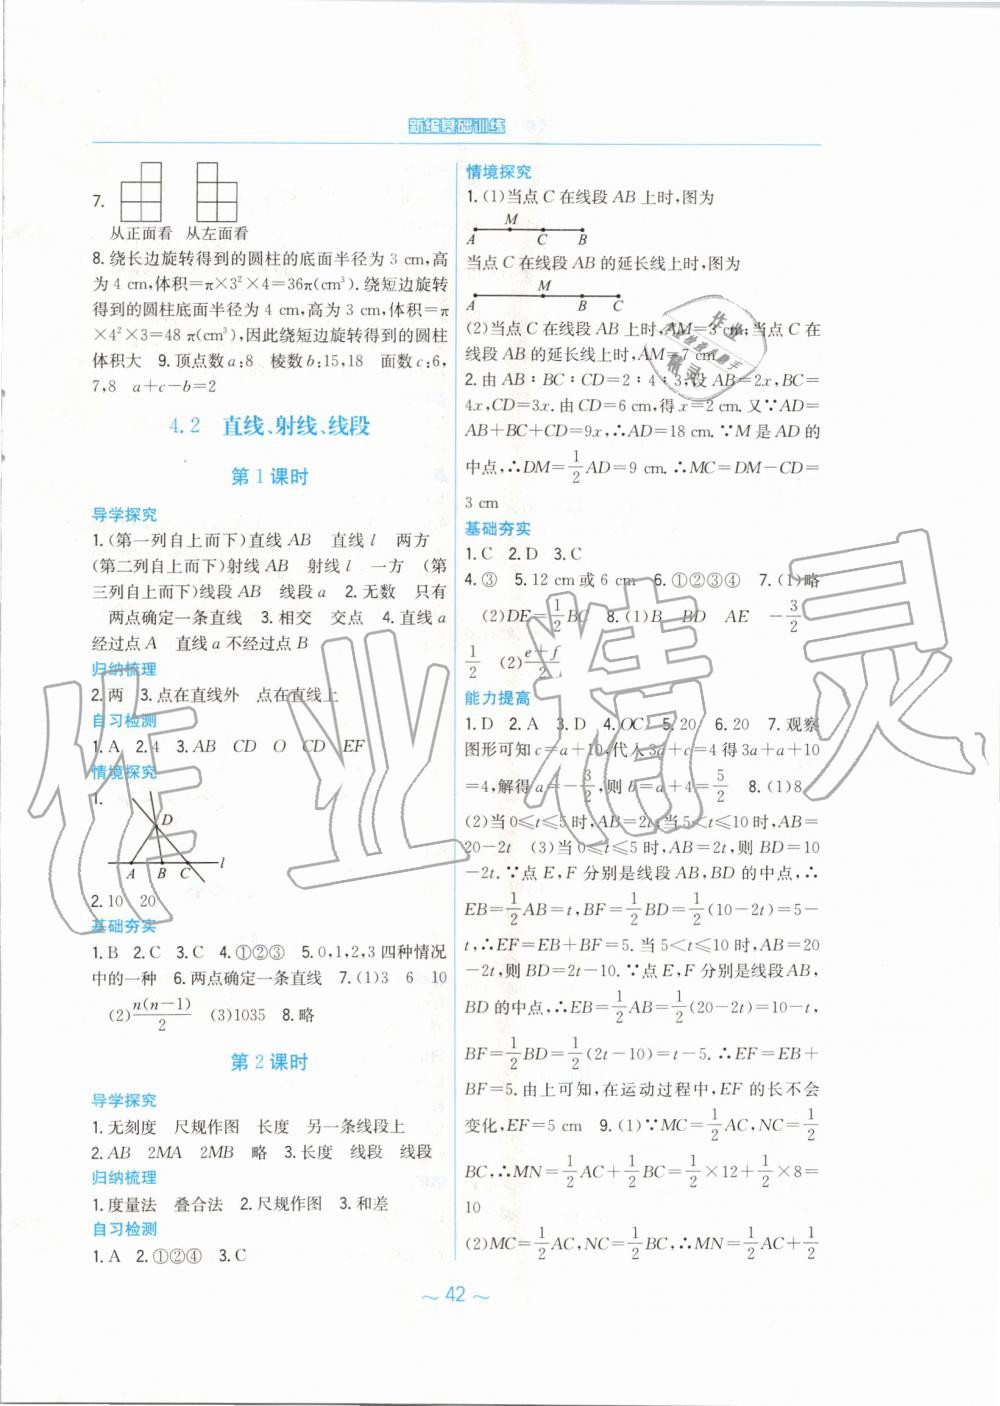 新编基础训练
7.
从正面看 从左面看
8. 绕长边旋转得到的圆柱的底面半径为 3 cm,高
为 4 cm,体积=π×3²×4=36π(cm³). 绕短边旋转
得到的圆柱底面半径为 4 cm,高为 3 cm,体积=π
×4²×3=48 π(cm³),因此绕短边旋转得到的圆柱
体积大 9. 顶点数 a:8 棱数 b:15,18 面数 c:6,
7,8 a+c-b=2
4.2 直线、射线、线段
第 1 课时
导学探究
1. (第一列自上而下)直线 AB 直线 l 两方
(第二列自上而下)射线 AB 射线 l 一方 (第
三列自上而下)线段 AB 线段 a 2. 无数 只有
一 两点确定一条直线 3. 相交 交点 4. 直线 a
经过点 A 直线 a 不经过点 B
归纳梳理
2. 两 3. 点在直线外 点在直线上
自习检测
1. A 2. 4 3. AB CD O CD EF
情境探究
1.
D
A B C l
2. 10 20
基础夯实
1. B 2. C 3. C 4. ①②③ 5. 0,1,2,3 四种情况
中的一种 6. 两点确定一条直线 7. (1)3 6 10
(2) n(n-1)/2 (3)1035 8. 略
第 2 课时
导学探究
1. 无刻度 尺规作图 长度 另一条线段上
2. AB 2MA 2MB 略 3. 长度 线段 线段
归纳梳理
1. 度量法 叠合法 2. 尺规作图 3. 和差
自习检测
1. A 2. ①②④ 3. C
情境探究
1. (1)当点 C 在线段 AB 上时,图为
M
A C B
当点 C 在线段 AB 的延长线上时,图为
M
A B C
(2)当点 C 在线段 AB 上时,AM=3 cm;当点 C 在
线段 AB 的延长线上时,AM=7 cm
2. 由 AB∶BC∶CD=2∶4∶3,设 AB=2x,BC=
4x,CD=3x. 由 CD=6 cm,得 x=2 cm. 又∵AD=
AB+BC+CD=9x,∴AD=18 cm. ∵M 是 AD 的
中点,∴DM=1/2 AD=9 cm. ∴MC=DM-CD=
3 cm
基础夯实
1. C 2. D 3. C
4. ③ 5. 12 cm 或 6 cm 6. ①②③④ 7. (1)略
(2)DE=1/2 BC 8. (1)B BD AE -3/2
1/2 (2) e+f/2
能力提高
1. D 2. A 3. D 4. OC 5. 20 6. 20 7. 观察
图形可知 c=a+10,代入 3a+c=4 得 3a+a+10
=4,解得 a=-3/2,则 b=a+4=5/2 8. (1)8
(2)当 0≤t≤5 时,AB=2t;当 5<t≤10 时,AB=
20-2t (3)当 0≤t≤5 时,AB=2t,则 BD=10
-2t. ∵点 E,F 分别是线段 AB,BD 的中点,∴
EB=1/2 AB=t,BF=1/2 BD=1/2(10-2t)=5-
t,∴EF=EB+BF=5. 当 5<t≤10 时,AB=20
-2t,则 BD=2t-10. ∵点 E,F 分别是线段 AB,
BD 的中点,∴EB=1/2 AB=1/2(20-2t)=10-t,
BF=1/2 BD=1/2(2t-10)=t-5. ∴EF=EB+
BF=5. 由上可知,在运动过程中,EF 的长不会
变化,EF=5 cm 9. (1)∵MC=1/2 AC,NC=1/2
BC,∴MN=1/2 AC+1/2 BC=1/2×12+1/2×8=
10
(2)MC=1/2 AC,NC=1/2 BC,∴MN=1/2 AC+1/2
～ 42 ～
作业精灵